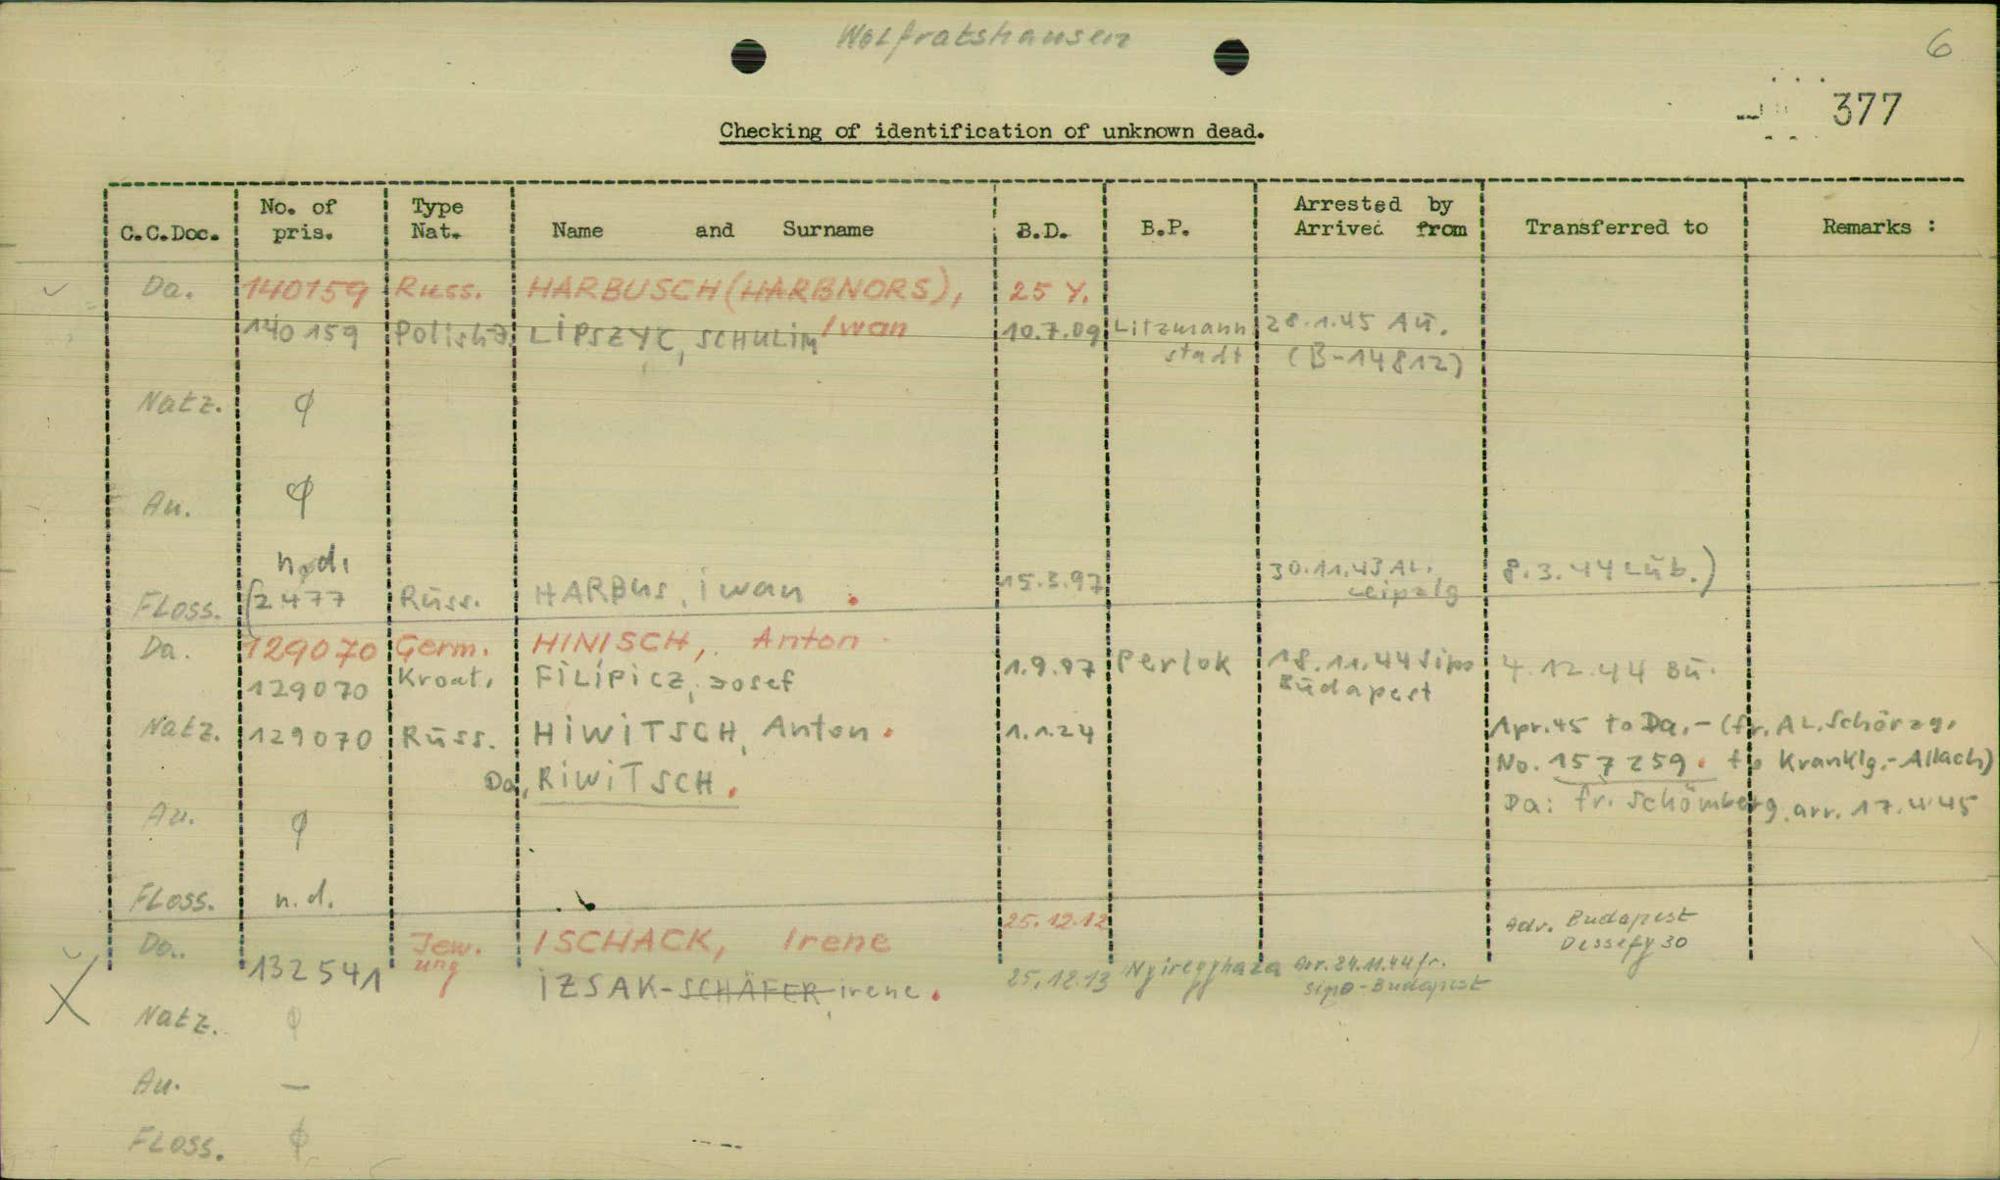 Wolfratshausen
6
377
Checking of identification of unknown dead.
C.C.Doc. No. of pris. Type Nat. Name and Surname B.D. B.P. Arrested by Arrived from Transferred to Remarks :
Da. 140159 Russ. HARBUSCH (HARBNORS), Iwan 25 Y.
140159 Polish J. LIPSZYC, SCHULIM 10.7.09 Litzmann 28.1.45 Au.
stadt (B-14812)
Natz. φ
Au. φ
n.d.
Floss. (2477 Russ. HARBUS, iwan. 15.3.97 30.11.43 AL. Leipzig 8.3.44 Lüb.)
Da. 129070 Germ. HINISCH, Anton
129070 Kroat. FILIPICZ, Josef 1.9.97 Perlok 18.11.44 Sipo Budapest 4.12.44 Bu.
Natz. 129070 Russ. HIWITSCH, Anton. 1.1.24 Apr.45 to Da.- (fr. AL. Schörzg.
No. 157259. to Kranklg.-Allach)
Da, RIWITSCH. Da: fr. Schömberg, arr. 17.4.45
Au. φ
Floss. n.d.
Da. Jew. ISCHACK, Irene 25.12.12 Adr. Budapest
Dessefy 30
132541 ung IZSAK-SCHÄFER, irene. 25.12.13 Nyiregyhaza arr. 24.11.44 fr.
Sipo-Budapest
X
Natz. φ
Au. —
Floss. φ